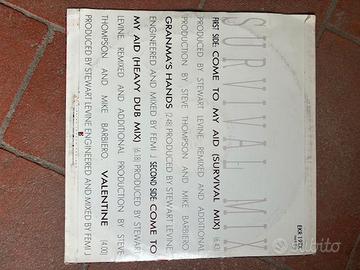 SURVIVAL MIX
FIRST SIDE: COME TO MY AID (SURVIVAL MIX)
PRODUCED BY STEWART LEVINE. REMIXED AND ADDITIONAL
PRODUCTION BY STEVE THOMPSON AND MIKE BARBIERO.
GRANMA'S HANDS (2.48) PRODUCED BY STEWART LEVINE
ENGINEERED AND MIXED BY FEMI J SECOND SIDE: COME TO
MY AID (HEAVY DUB MIX) (6.18) PRODUCED BY STEWART
LEVINE. REMIXED AND ADDITIONAL PRODUCTION BY STEVE
THOMPSON AND MIKE BARBIERO. VALENTINE (4.00)
PRODUCED BY STEWART LEVINE ENGINEERED AND MIXED BY FEMI J
EKR 19TX
subito